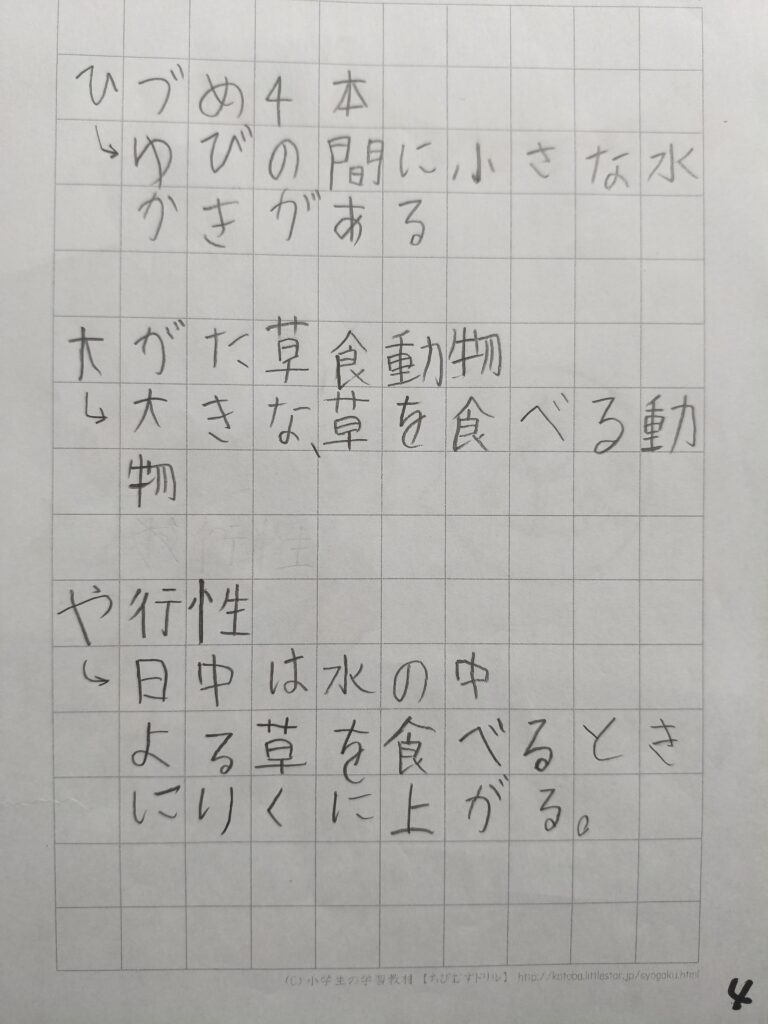 ひづめ4本
↳ゆびの間に小さな水
かきがある
大がた草食動物
↳大きな、草を食べる動
物
や行性
↳日中は水の中
よる草を食べるとき
にりくに上がる。
(C) 小学生の学習教材【ちびむすドリル】 http://kotoba.littlestar.jp/syogaku.html
4